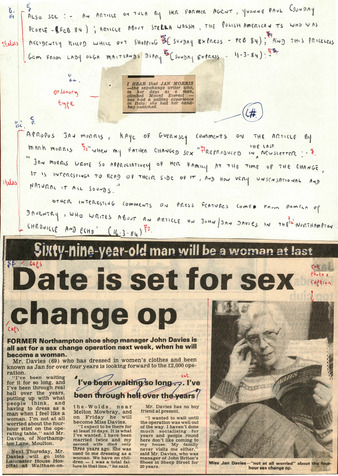 ALSO SEE :- AN ARTICLE ON TULA BY HER FORMER AGENT, YVONNE PAUL (SUNDAY
PEOPLE - FEB 84) ; ARTICLE ABOUT STELLA WALSH, THE POLISH AMERICAN TS WHO WAS
ACCIDENTLY KILLED WHILE OUT SHOPPING (SUNDAY EXPRESS - FEB 84) ; AND THIS PRICELESS
GEM FROM LADY OLGA MAITLANDS DIARY (SUNDAY EXPRESS - 11-3-84) :-
italics
I HEAR that JAN MORRIS
—the sex-change writer who,
in her days as a man,
climbed Mount Everest —
has had a sobering experience
in Italy: she had her hand-
bag snatched.
ordinary
type
L#
APROPOS JAN MORRIS, KAYE OF GUERNSEY COMMENTS ON THE ARTICLE BY
THE LAST
MARK MORRIS "WHEN MY FATHER CHANGED SEX" REPRODUCED IN NEWSLETTER :-
"JAN MORRIS WROTE SO APPRECIATIVELY OF HER FAMILY AT THE TIME OF THE CHANGE,
IT IS INTERESTING TO READ OF THEIR SIDE OF IT, AND HOW VERY UNSENSATIONAL AND
NATURAL IT ALL SOUNDS."
italics
OTHER INTERESTING COMMENTS ON PRESS FEATURES COME FROM PAMELA OF
DAVENTRY, WHO WRITES ABOUT AN ARTICLE ON JOHN/JAN DAVIES IN THE "NORTHAMPTON
CHRONICLE AND ECHO" (16-3-84)
Sixty-nine-year-old man will be a woman at last
caps
Date is set for sex
change op
caps
FORMER Northampton shoe shop manager John Davies is
all set for a sex change operation next week, when he will
become a woman.
Mr. Davies (69) who has dressed in women's clothes and been
known as Jan for over four years is looking forward to the £2,000 ope-
ration.
"I've been waiting
for it for so long, and
I've been through real
hell over the years,
putting up with what
people think, and
having to dress as a
man when I feel like a
woman. I'm not at all
worried about the four-
hour stint on the ope-
rating table," said Mr.
Davies, of Northamp-
ton Lane, Moulton.
Next Thursday, Mr.
Davies will go into
a
"I've been waiting so long ... I've
been through hell over the years!
the-Wolds, near
Melton Mowbray, and
on Friday he will
become Miss Davies.
"I expect to be there for
at least 10 days. It is what
I've wanted. I have been
married twice and my
second wife that when
she used to dress me
as a woman.
Mr. Davies has no boy
friend at present.
"I wanted to wait until
the operation was well out
of the way. I haven't done
much socialising the
years and people round
here don't like coming to
my house. My family
never visits me either,"
said Mr. Davies, who was
manager of John Britten's
shoe in Sheep Street for
20 years.
Miss Jan Davies — "not at all worried" about the four-
hour sex change op.